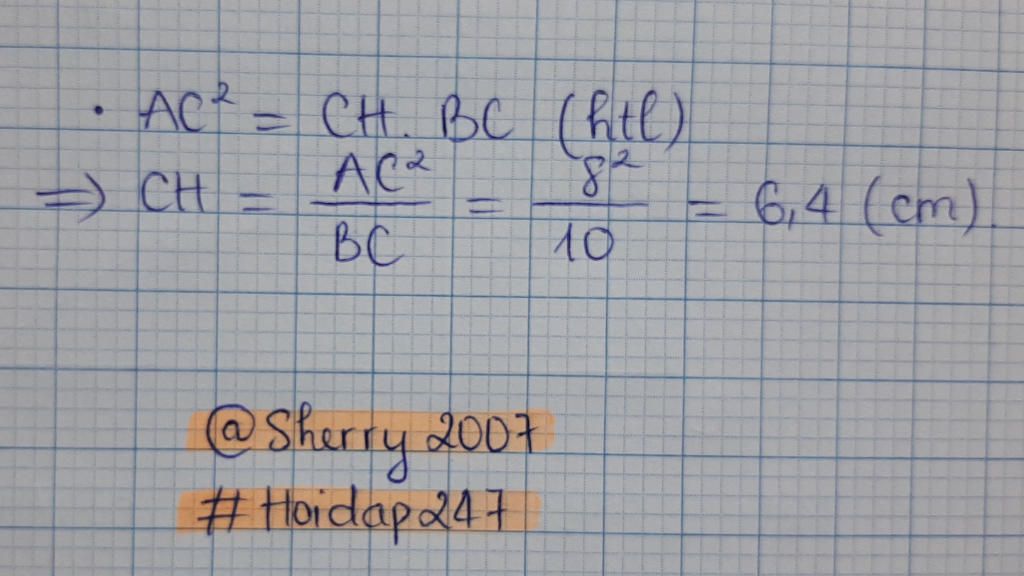 · AC² = CH. BC (htl)
=> CH = AC²/BC = 8²/10 = 6,4 (cm).
@Sherry 2007
# Hoidap247